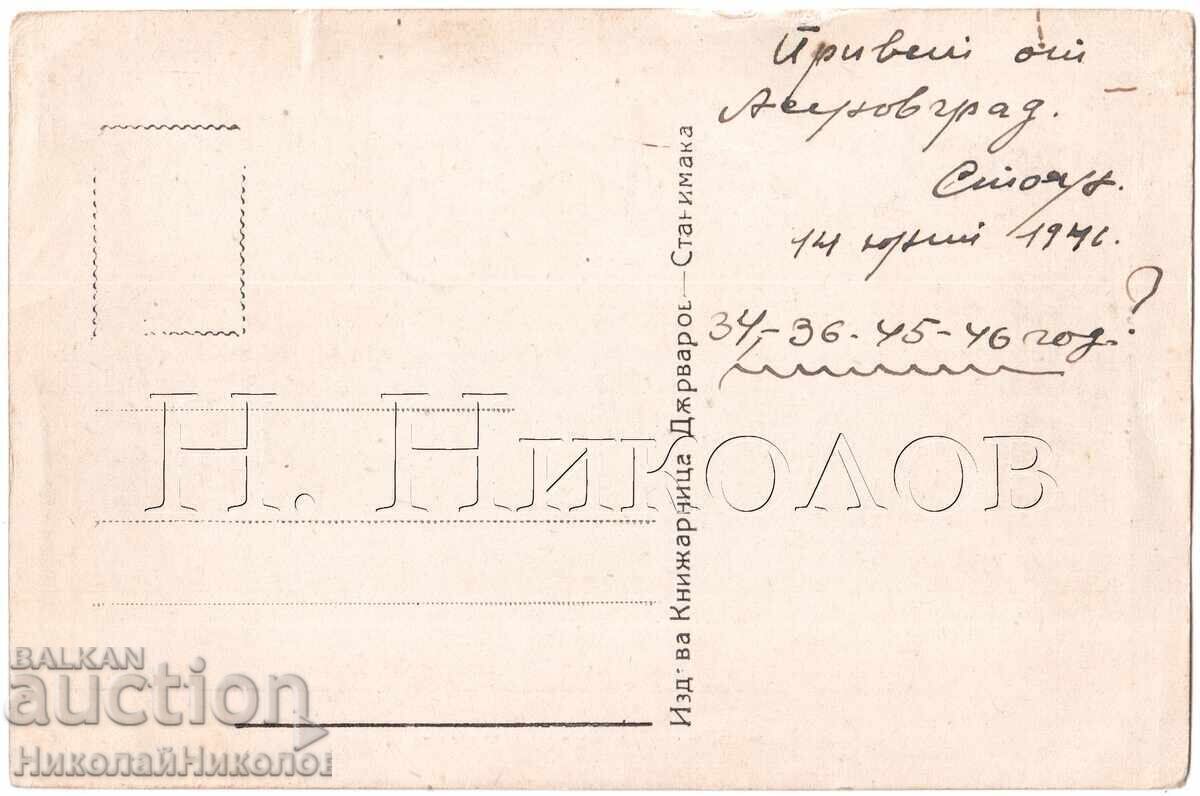 Привет от
Асеновград.
Стоян.
14 юний 194 г.
34,-36-45-46 год.?
Изд ва Книжарница Държаров—Станимака
Н. Николов
BALKAN
auction
НиколайНиколов